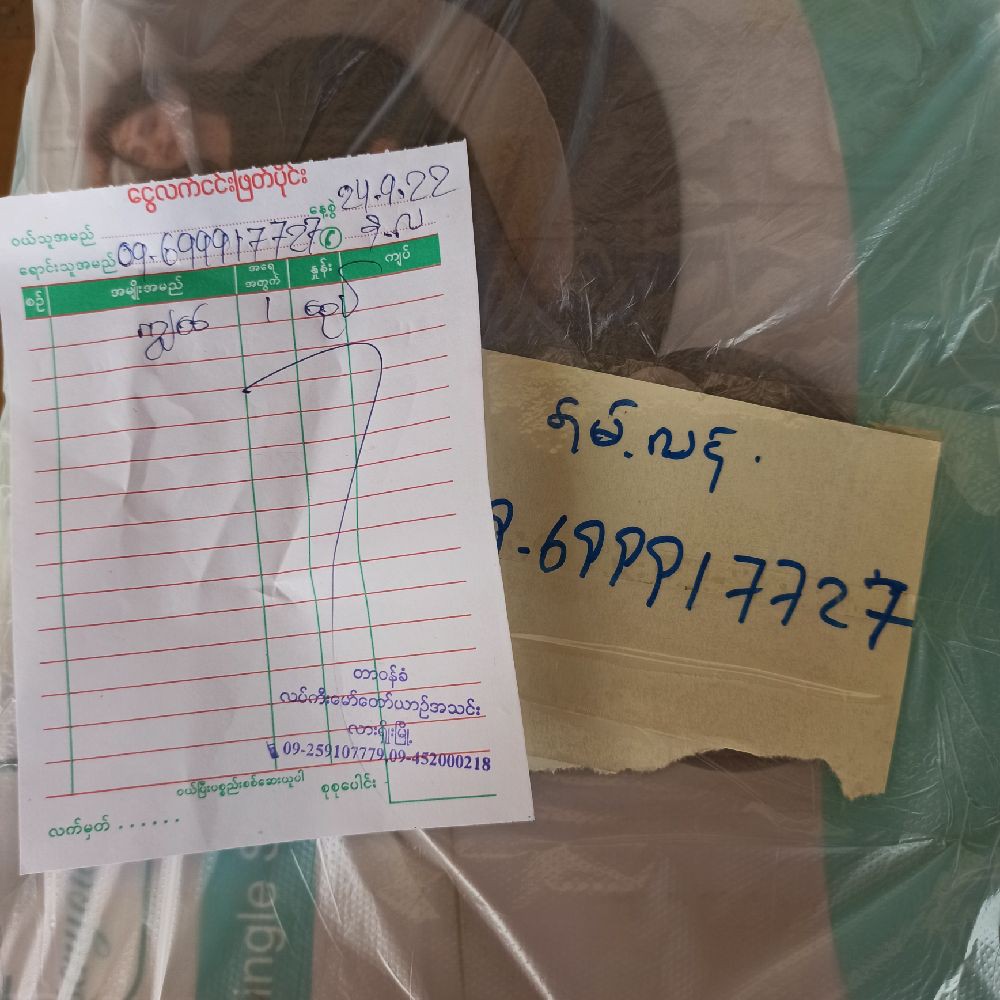 ငွေလက်ငင်းဖြတ်ပိုင်း
နေ့စွဲ 24.9.22
ဝယ်သူအမည်
ရောင်းသူအမည် 09.699917727
စဉ် အမျိုးအမည် အရေအတွက် နှုန်း ကျပ်
ကျွတ် 1 ထုပ်
တာဝန်ခံ
လပ်ကီးမော်တော်ယာဉ်အသင်း
လားရှိုးမြို့
09-259107779,09-452000218
ဝယ်ပြီးပစ္စည်းစစ်ဆေးယူပါ
စုစုပေါင်း
လက်မှတ် . . . . . .
9-699917727
ingle